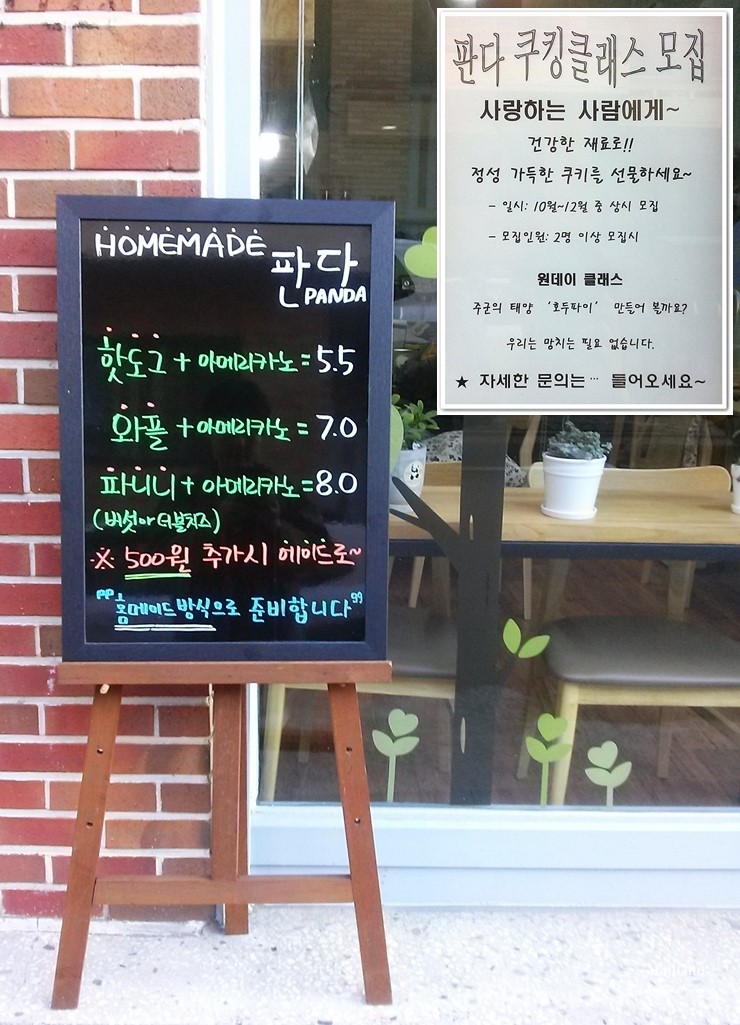 HOMEMADE 판다
PANDA
핫도그 + 아메리카노 = 5.5
와플 + 아메리카노 = 7.0
파니니 + 아메리카노 = 8.0
(버섯 or 더블치즈)
※ 500원 추가시 에이드로~
"홈메이드 방식으로 준비합니다"
판다 쿠킹클래스 모집
사랑하는 사람에게~
건강한 재료로!!
정성 가득한 쿠키를 선물하세요~
- 일시: 10월~12월 중 상시 모집
- 모집인원: 2명 이상 모집시
원데이 클래스
주군의 태양 '호두파이' 만들어 볼까요?
우리는 망치는 필요 없습니다.
★ 자세한 문의는… 들어오세요~